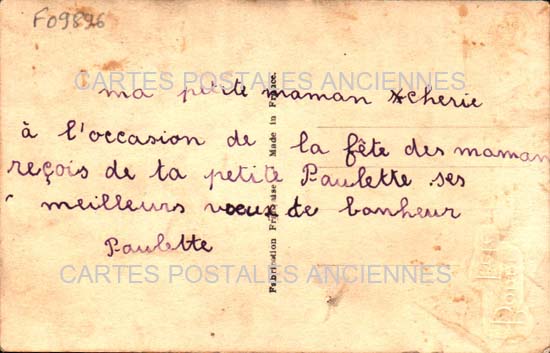 F09896
CARTES POSTALES ANCIENNES
ma petite maman cherie
à l'occasion de la fête des maman
reçois de ta petite Paulette ses
meilleurs vœux de bonheur
Paulette
CARTES POSTALES ANCIENNES
Fabrication Française - Made in France.